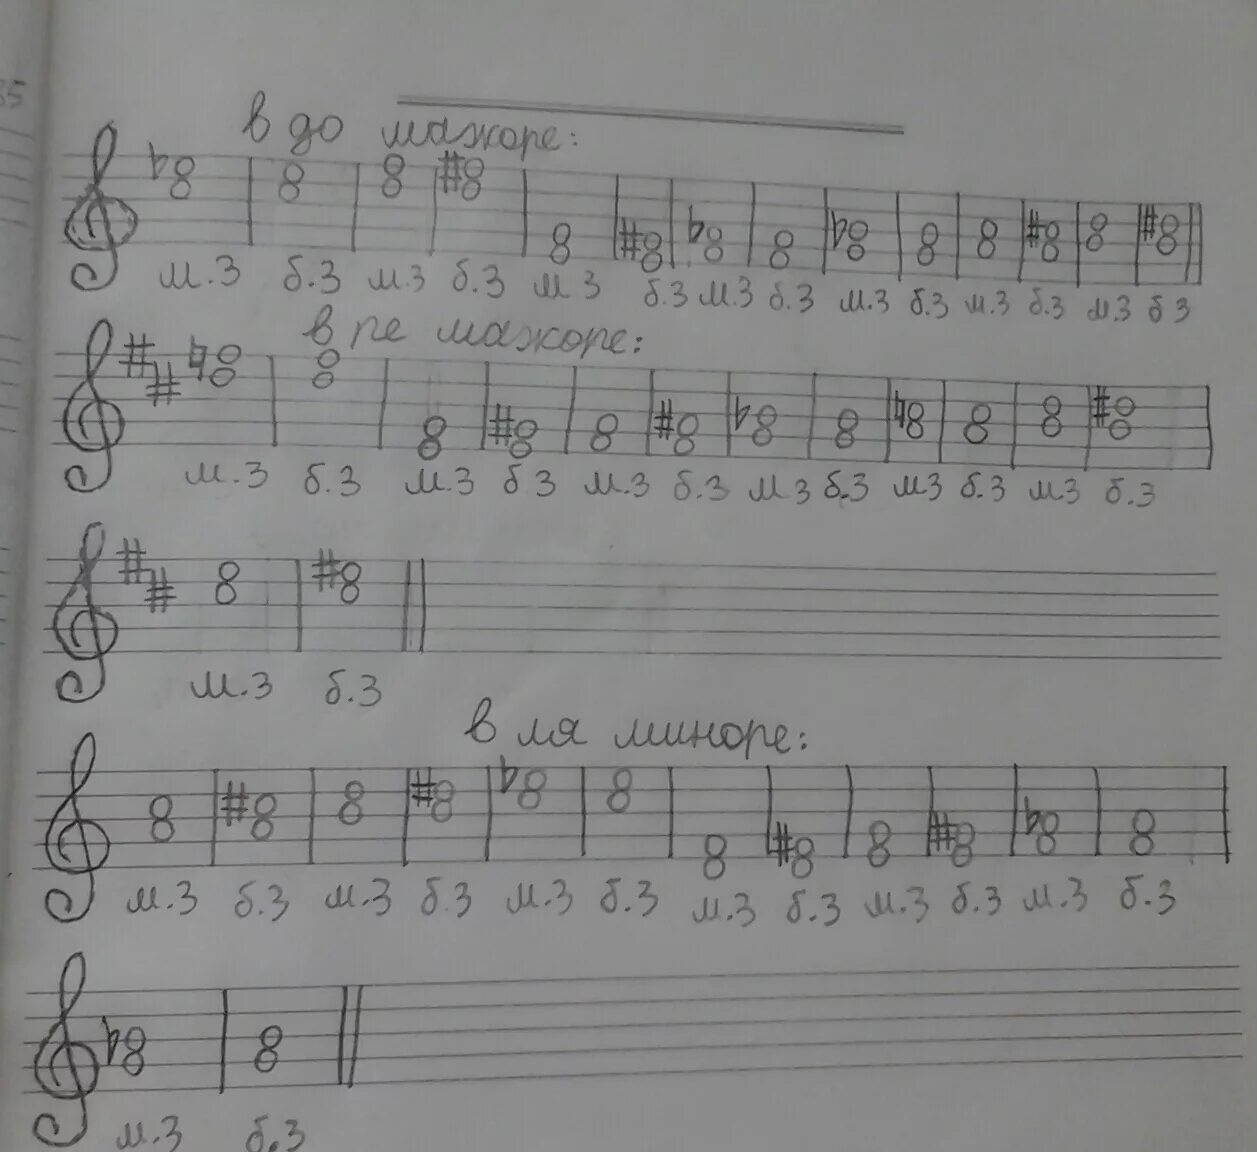 35
в до мажоре:
м.3 б.3 м.3 б.3 м 3 б.3 м.3 б.3 м.3 б.3 м.3 б.3 м.3 б 3
в ре мажоре:
м.3 б.3 м.3 б 3 м.3 б.3 м 3 б.3 м3 б.3 м.3 б.3
м.3 б.3
в ля миноре:
м.3 б.3 м.3 б.3 м.3 б.3 м.3 б.3 м.3 б.3 м.3 б.3
м.3 б.3